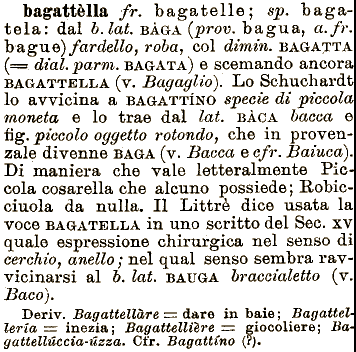 bagattèlla fr. bagatelle; sp. baga-
tela: dal b. lat. BÀGA (prov. bagua, a. fr.
bague) fardello, roba, col dimin. BAGATTA
(= dial. parm. BAGATA) e scemando ancora
BAGATTELLA (v. Bagaglio). Lo Schuchardt
lo avvicina a BAGATTÍNO specie di piccola
moneta e lo trae dal lat. BÀCA bacca e
fig. piccolo oggetto rotondo, che in proven-
zale divenne BAGA (v. Bacca e cfr. Baiuca).
Di maniera che vale letteralmente Pic-
cola cosarella che alcuno possiede; Robic-
ciuola da nulla. Il Littrè dice usata la
voce BAGATELLA in uno scritto del Sec. XV
quale espressione chirurgica nel senso di
cerchio, anello; nel qual senso sembra rav-
vicinarsi al b. lat. BAUGA braccialetto (v.
Baco).
Deriv. Bagattellàre = dare in baie; Bagattel-
lería = inezia; Bagattellière = giocoliere; Ba-
gattellúccia-úzza. Cfr. Bagattíno (?).